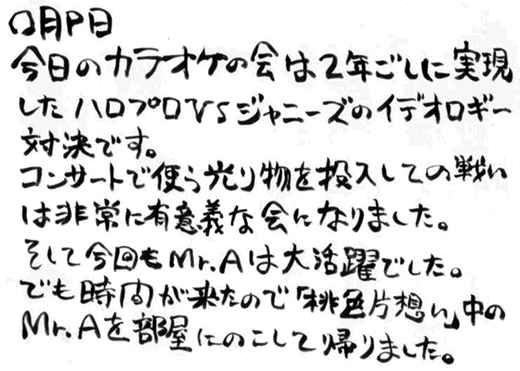 ○月P日
今日のカラオケの会は2年ごしに実現
したハロプロVSジャニーズのイデオロギー
対決です。
コンサートで使う光り物を投入しての戦い
は非常に有意義な会になりました。
そして今回もMr.Aは大活躍でした。
でも時間が来たので「桃色片想い」中の
Mr.Aを部屋にのこして帰りました。